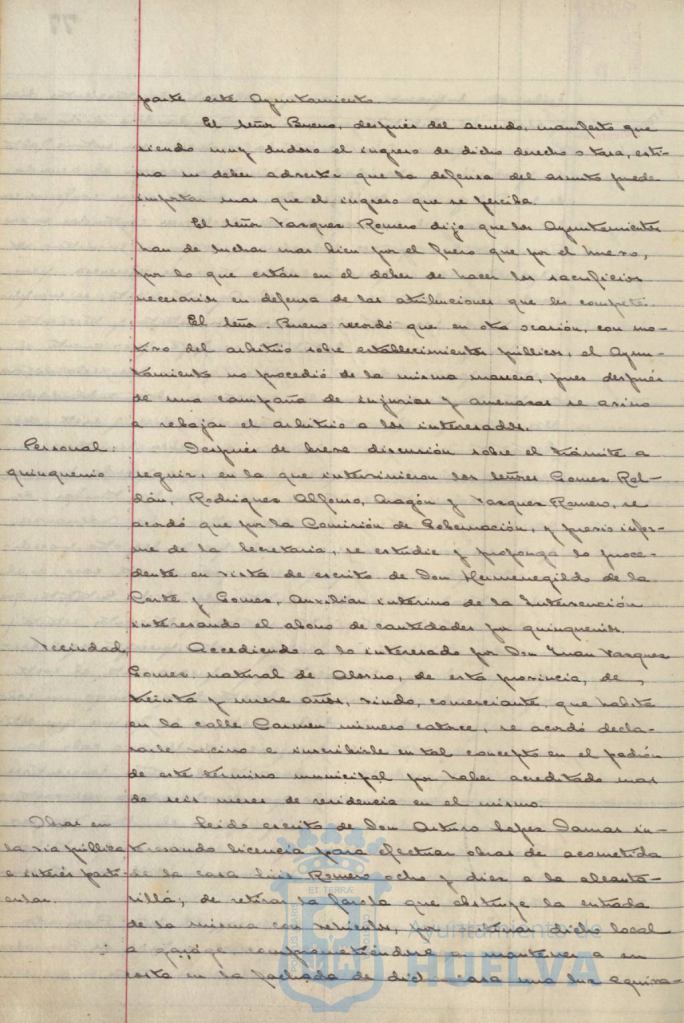 parte este Ayuntamiento
El señor Bueno, después del acuerdo, manifestó que
siendo muy dudoso el ingreso de dicho derecho o tasa, esti-
ma su deber advertir que la defensa del asunto puede
importar mas que el ingreso que se perciba.
El señor Vazquez Romero dijo que los Ayuntamientos
han de luchar mas bien por el fuero que por el huevo,
por lo que están en el deber de hacer los sacrificios
necesarios en defensa de las atribuciones que les compete.
El señor Bueno recordó que en otra ocasión, con mo-
tivo del arbitrio sobre establecimientos públicos, el Ayun-
tamiento no procedió de la misma manera, pues después
de una campaña de injurias y amenazas se avino
a rebajar el arbitrio a los interesados.
Personal:
quinquenio
Después de breve discusión sobre el trámite a
seguir, en la que intervinieron los señores Gomez Rol-
dán, Rodriguez Alfonso, Aragón y Vazquez Romero, se
acordó que por la Comisión de Gobernación, y previo infor-
me de la Secretaria, se estudie y proponga lo proce-
dente en vista de escrito de Don Hermenegildo de la
Corte y Gomez, Auxiliar interino de la Intervención
interesando el abono de cantidades por quinquenios.
Vecindad
Accediendo a lo interesado por Don Juan Vazquez
Gomez, natural de Alosno, de esta provincia, de
treinta y nueve años, viudo, comerciante, que habita
en la calle Carmen número catorce, se acordó decla-
rarle vecino e inscribirle en tal concepto en el padrón
de este término municipal por haber acreditado mas
de seis meses de residencia en el mismo.
Obras en
la via pública
e interés parti-
cular.
Leido escrito de Don Arturo Lopez Damas in-
teresando licencia para efectuar obras de acometida
de la casa Romero ocho y diez a la alcanta-
rilla; de retirar la farola que obstruye la entrada
de la misma con vehiculos, por destinar dicho local
a garage comprometiéndose a mantener a su
costa en la fachada de dicha casa una luz equiva-
Ayuntamiento de
HUELVA